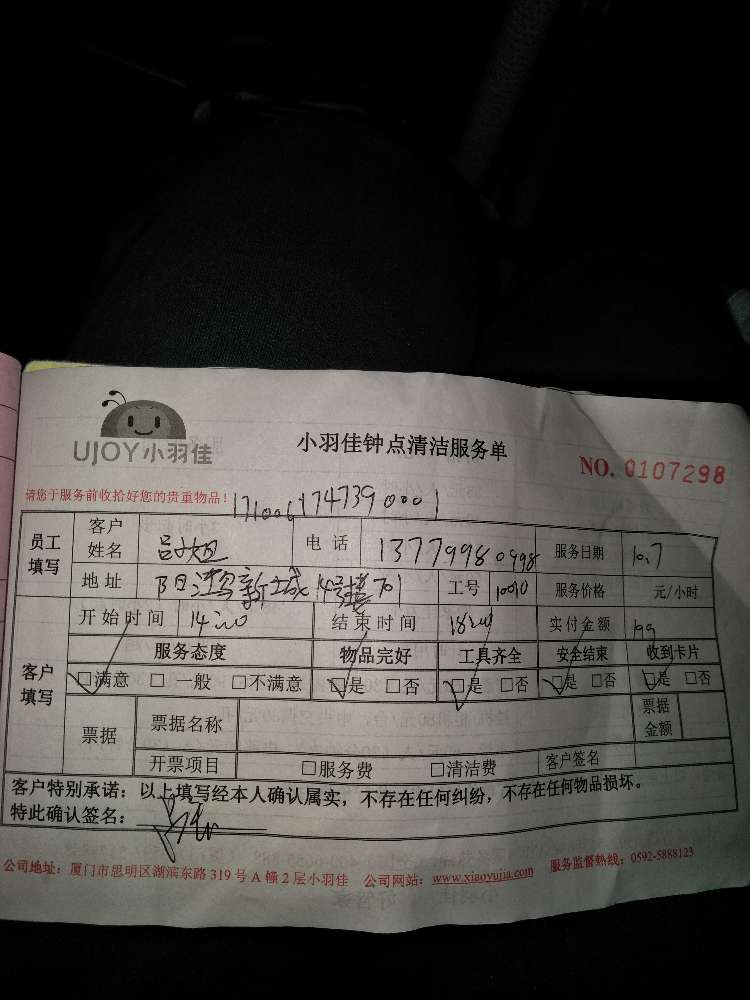 UJOY小羽佳
小羽佳钟点清洁服务单
NO. 0107298
请您于服务前收拾好您的贵重物品!
1710061747390001
员工填写 客户姓名 吕小姐 电话 13779980998 服务日期 10.7
地址 新城 701 工号 10010 服务价格 元/小时
客户填写 开始时间 14:00 结束时间 18:00 实付金额 199
服务态度 物品完好 工具齐全 安全结束 收到卡片
□满意 □一般 □不满意 □是 □否 □是 □否 □是 □否 □是 □否
票据 票据名称 票据金额
开票项目 □服务费 □清洁费 客户签名
客户特别承诺：以上填写经本人确认属实，不存在任何纠纷，不存在任何物品损坏。
特此确认签名：
公司地址：厦门市思明区湖滨东路319号A幢2层小羽佳 公司网站：www.xiaoyujia.com 服务监督热线：0592-5888123